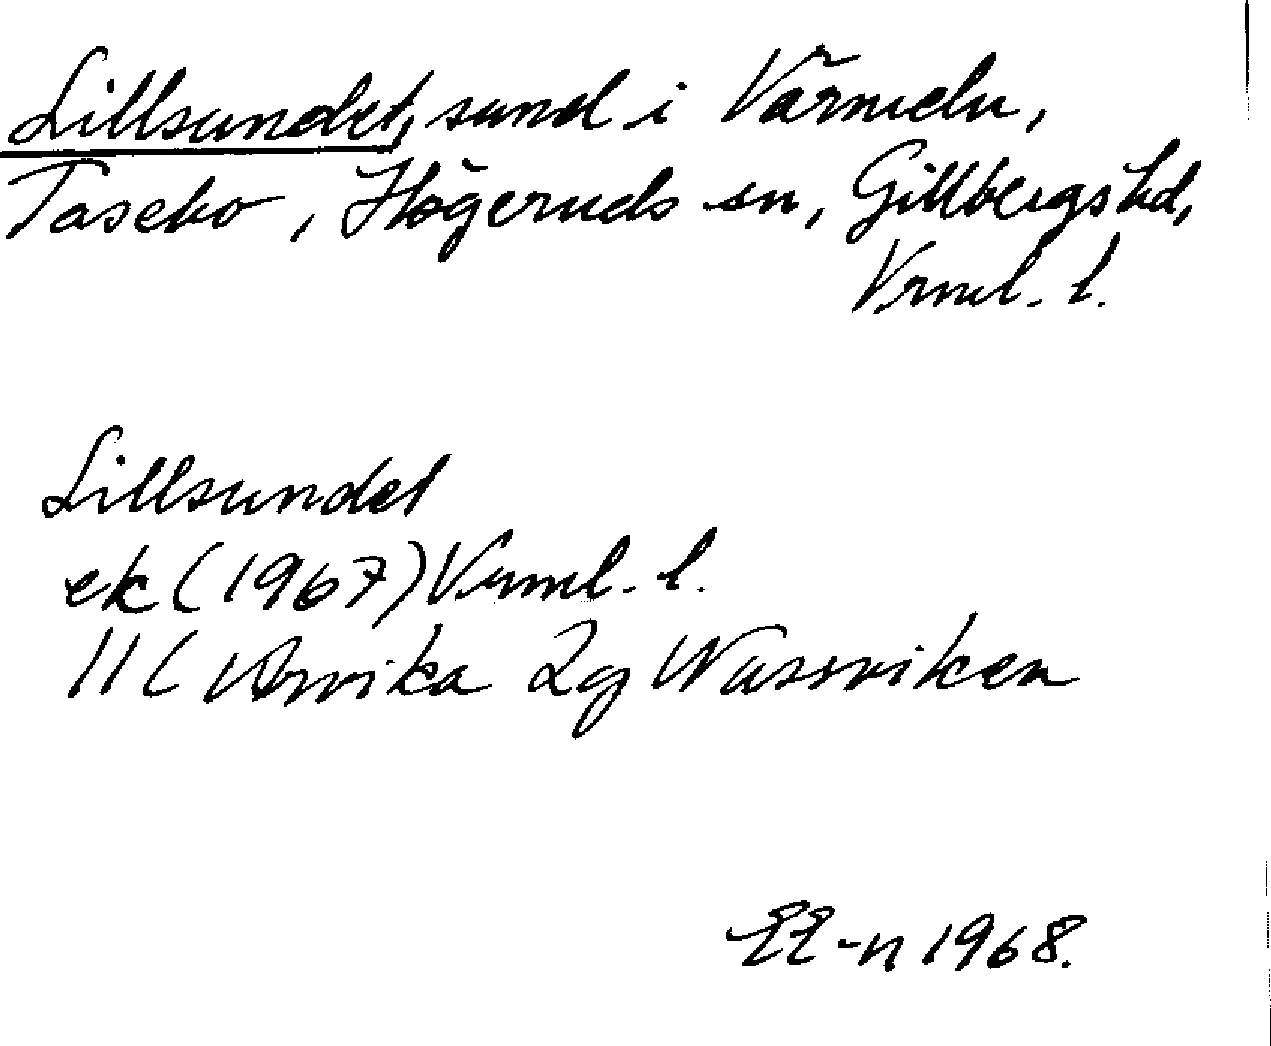 Lillsundet, sund i Värmeln,
Tasebo, Högeruds sn, Gillbergs hd,
Vrml. l.
Lillsundet
ek (1967) Vrml. l.
11C Arvika 2g Nussviken
EE-n 1968.